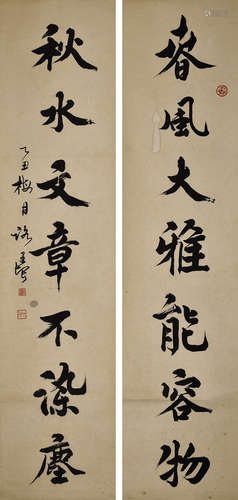 春風大雅能容物
秋水文章不染塵
乙丑梅月